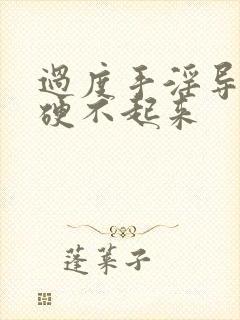 过度手淫导
硬不起来
蓬莱子